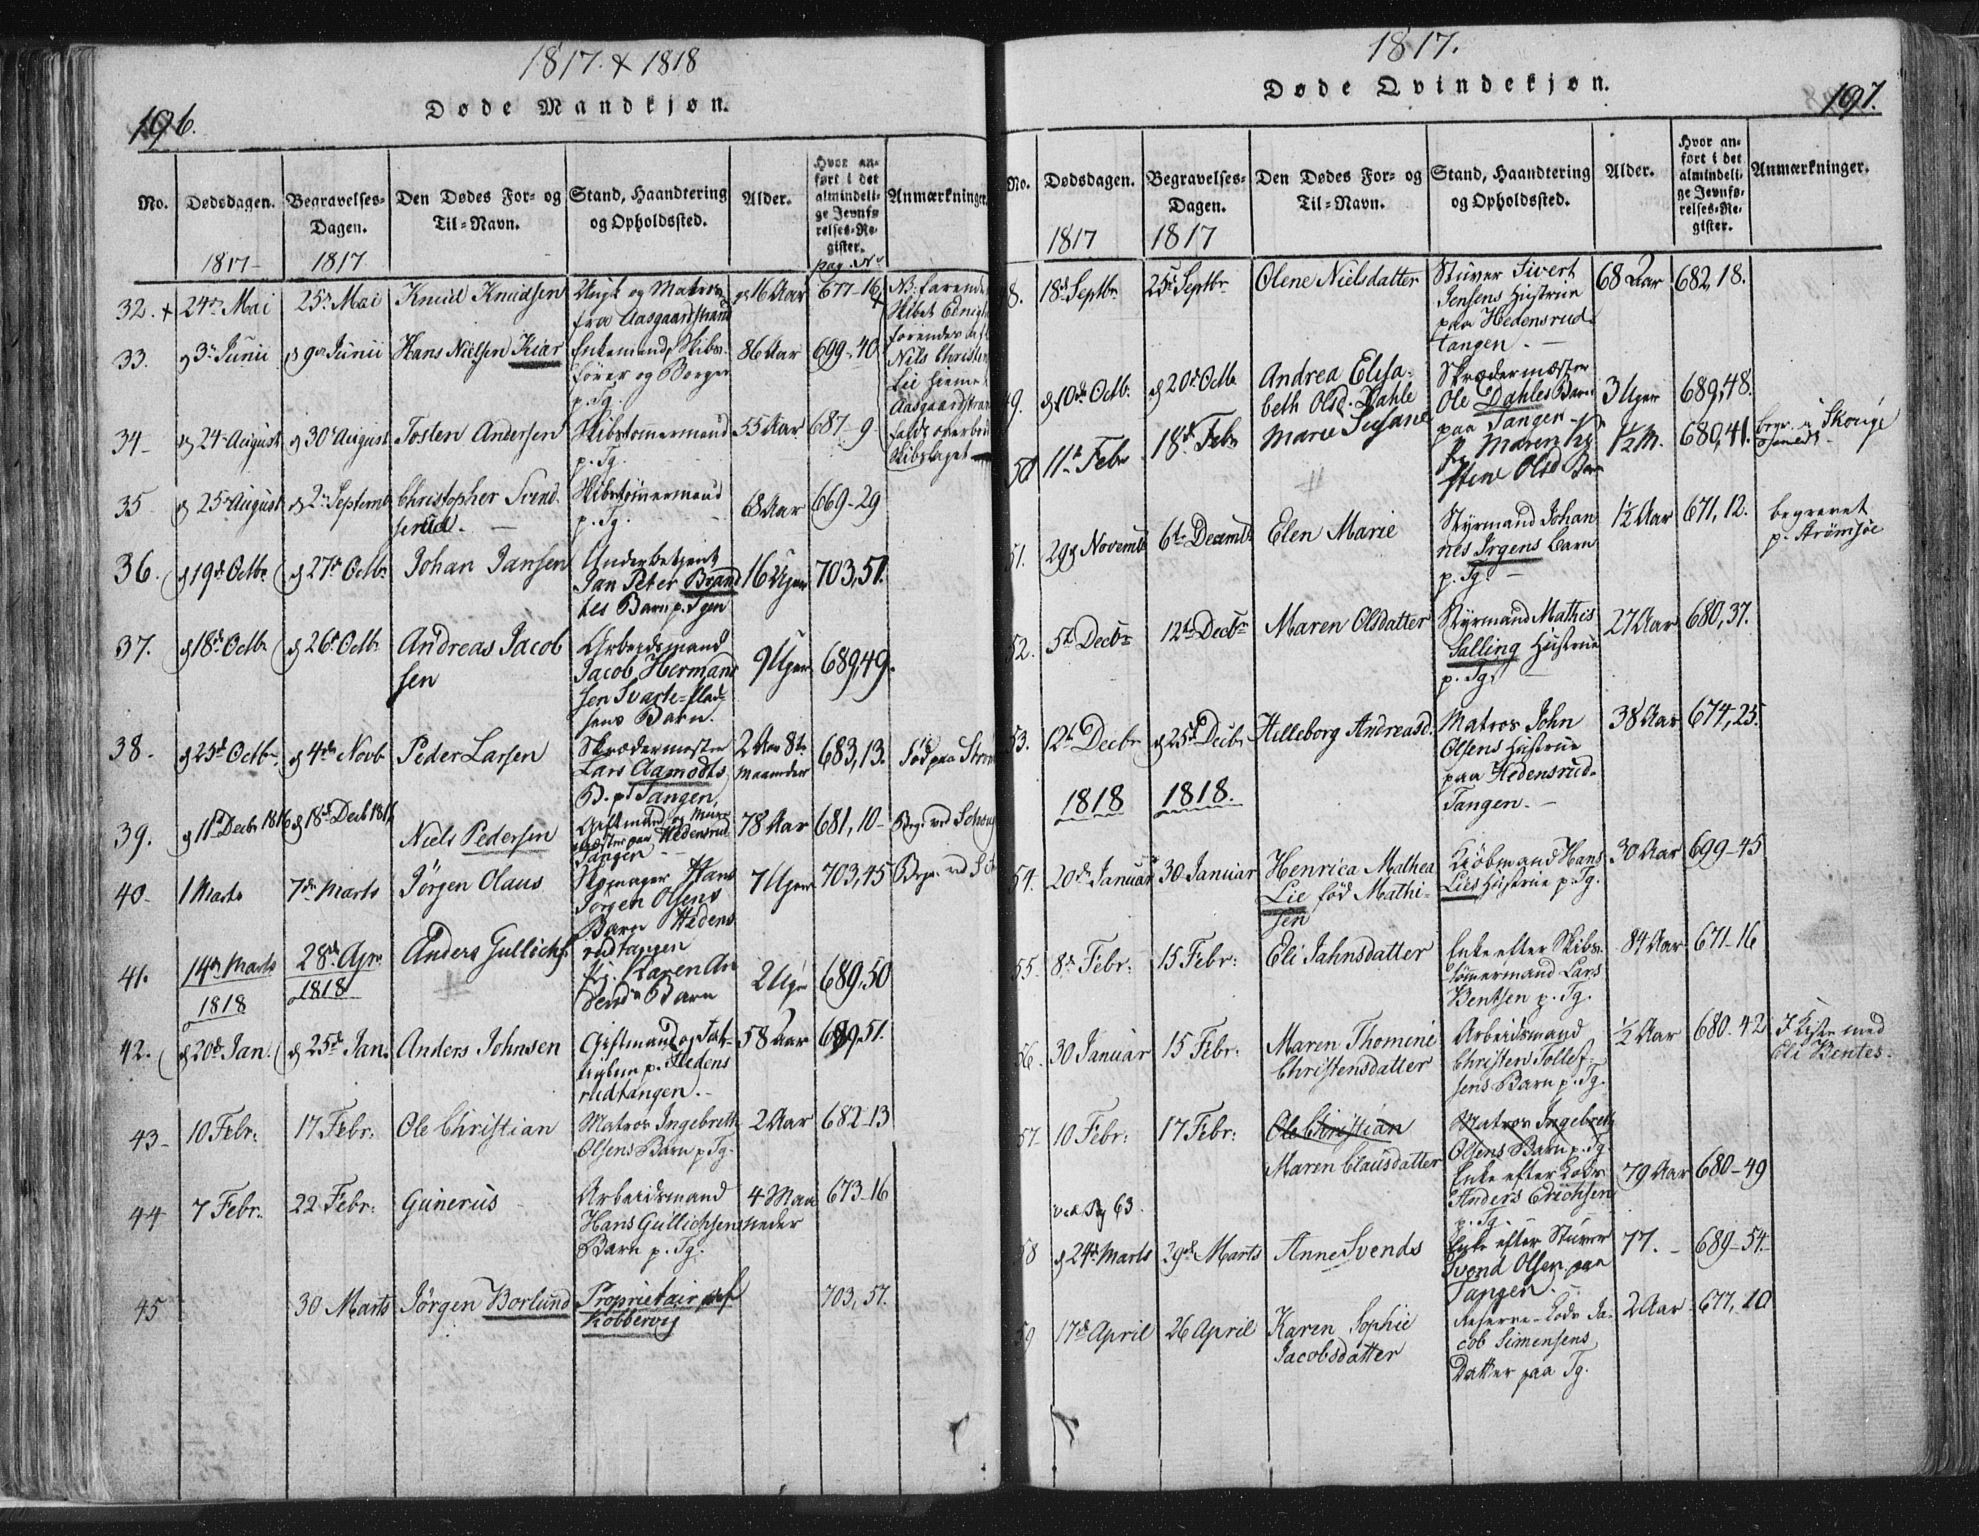 1817. & 1818
196.
Døde Mandkjøn.
No.
Dødsdagen.
Begravelses-
Dagen.
Den Dødes For- og
Til-Navn.
Stand, Haandtering
og Opholdssted.
Alder.
Hvor an-
ført i det
almindeli-
ge Jevnfø-
relses-Re-
gister.
Anmærkninger.
1817
1817
32. 24 Mai 25 Mai Knud Knudsen
fra Aasgaardstrand
16 Aar 677-16
33. 3 Junii 9 Junii Hans Nielsen Kiær
Enkemand, Skibs-
fører og Borger
p. Tg.
86 Aar 699-40
Nils Christen
Aasgaardstran
34 24 August 30 August Tosten Andersen
Skibstømmermand
p. Tg.
55 Aar 687-9
35 25 August 2 Septemb Christopher Svend-
Skibstømmermand
p. Tg.
Aar 669-29
36. 19d Octbr 27d Octbr Johan Jansen
Underbetjent
Jan Peter Brand
tes Barn p. Tgen
16 Uger 703,51.
37. 18d Octbr 26d Octbr Andreas Jacob
sen
Arbeidsmand
Jacob Hermand
sen Svarte-
Barn.
9 Uger 689,49.
38. 25d Octbr 4de Novb Peder Larsen
Skrædermester
Lars Aamodts
B. p. Tangen
2 Aar 8te
Maaneder
683,13. Fød paa Strøm
39. 11 Decbr 1816 18d Decb 1816
Niels Pedersen
Giftmand og Muur
mester paa Hedensrud
Tangen
78 Aar 681,10- Begr. ved Schoug
40. 1 Marts 7de Marts Jörgen Olaus
Hans
Jörgen Olsens
Barn Hedens
rudtangen
7 Uger 703,45 Begr. ved
41. 14d Marts 28d Apr. Anders Gullichs.
1818 1818
p. Karen An
Barn
2 Uger 689,50
42. 20d Jan. 25d Jan. Anders Johnsen
Giftmand og
p. Hedens
rudtangen.
58 Aar 689-51.
43- 10 Febr: 17 Febr: Ole Christian
Matros Ingebrett
Olsens Barn p Tg.
2 Aar 682-13
44 7 Febr. 22 Febr: Gunerus
Arbeidsmand
Hans Gullichsens
Barn p. Tg.
4 Maa
neder
673-16
45 30 Marts Jörgen Borlund
Proprietair af
Kobbervig
703, 57.
1817.
Døde Qvindekjøn.
197.
No.
Dødsdagen.
Begravelses-
Dagen.
Den Dødes For- og
Til-Navn.
Stand, Haandtering
og Opholdssted.
Alder.
Hvor an-
ført i det
almindeli-
ge Jevnfø-
relses-Re-
gister.
Anmærkninger.
1817
1817
48. 18d Septbr 25d Septbr Olene Nielsdatter
Stuver Sivert
Jensens Hustrue
paa Hedensrud-
tangen.
68 Aar 682, 18.
49. 10de Octb. 20d Octb Andrea Elisa-
beth Olsd. Dahle
Skrædermester
Ole Dahles Barn
paa Tangen
3 Uger 689,48.
50 11te Febr 18d Febr Marie Susane
p. Maren Kir
stine Olsd Barn
1½ M. 680,41.
begr. Skouge
51. 29d Novemb 6te Decemb Elen Marie
Styrmand Johan
nes Irgens barn
p. Tg.
1½ Aar 671, 12.
begravet
p. Strømsøe
52. 5te Decbr 12te Decbr Maren Olsdatter
Styrmand Mathis
Salling Hustrue
p. Tg.
27 Aar 680, 37.
53. 12te Decbr 25d Decbr Hilleborg Andreasd.
Matros John
Olsens Hustrue
paa Hedensrud-
Tangen.
38 Aar 674, 25.
1818 1818.
54. 20de Januar 30 Januar Henrica Mathea
Lie fød Mathi-
sen
Kiøbmand Hans
Lies Hustrue p. Tg.
30 Aar 699-45
55. 8d Febr: 15 Febr: Eli Jahnsdatter
Enke efter Skibs-
tømmermand Lars
Bentsen p. Tg.
84 Aar 671-16
56. 30 Januar 15 Febr: Maren Thomine
Christensdatter
Arbeidsmand
Christen Tollef-
sens Barn p. Tg.
½ Aar 680-42
I Kiste med
Eli Bentes.
57 10 Febr: 17 Febr: Ole Christian
Matros Ingebrett
Olsens Barn p. Tg.
Maren Clausdatter
Enke efter Lods
Anders Erichsen
p. Tg
79 Aar 680-49
ved Pg 63.
58 24d Marts 29d Marts Anne Svends
Enke efter Stuver
Svend Olsen paa
Tangen.
77. 689-54-
59 17d April 26 April Karen Sophie
Jacobsdatter
Reserve-Lods Ja-
cob Simensens
Datter paa Tg.
2 Aar 677, 20